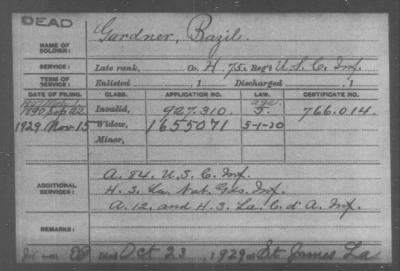 DEAD
NAME OF SOLDIER: Gardner, Bazile.
SERVICE: Late rank, Co. H, 75. Reg't U.S.C. Inf.
TERM OF SERVICE: Enlisted , 1 Discharged , 1
DATE OF FILING. CLASS. APPLICATION NO. LAW. CERTIFICATE NO.
age
1890 Sep 22 Invalid, 927.310. 766.014.
1929 Nov. 15 Widow, 1655071 5-1-20
Minor,
ADDITIONAL SERVICES: A. 84. U.S.C. Inf.
H. 3. La. Nat. Gds. Inf.
A. 12. and H. 3. La. C. d' A. Inf.
REMARKS:
Died Oct 23, 1929 at St. James La